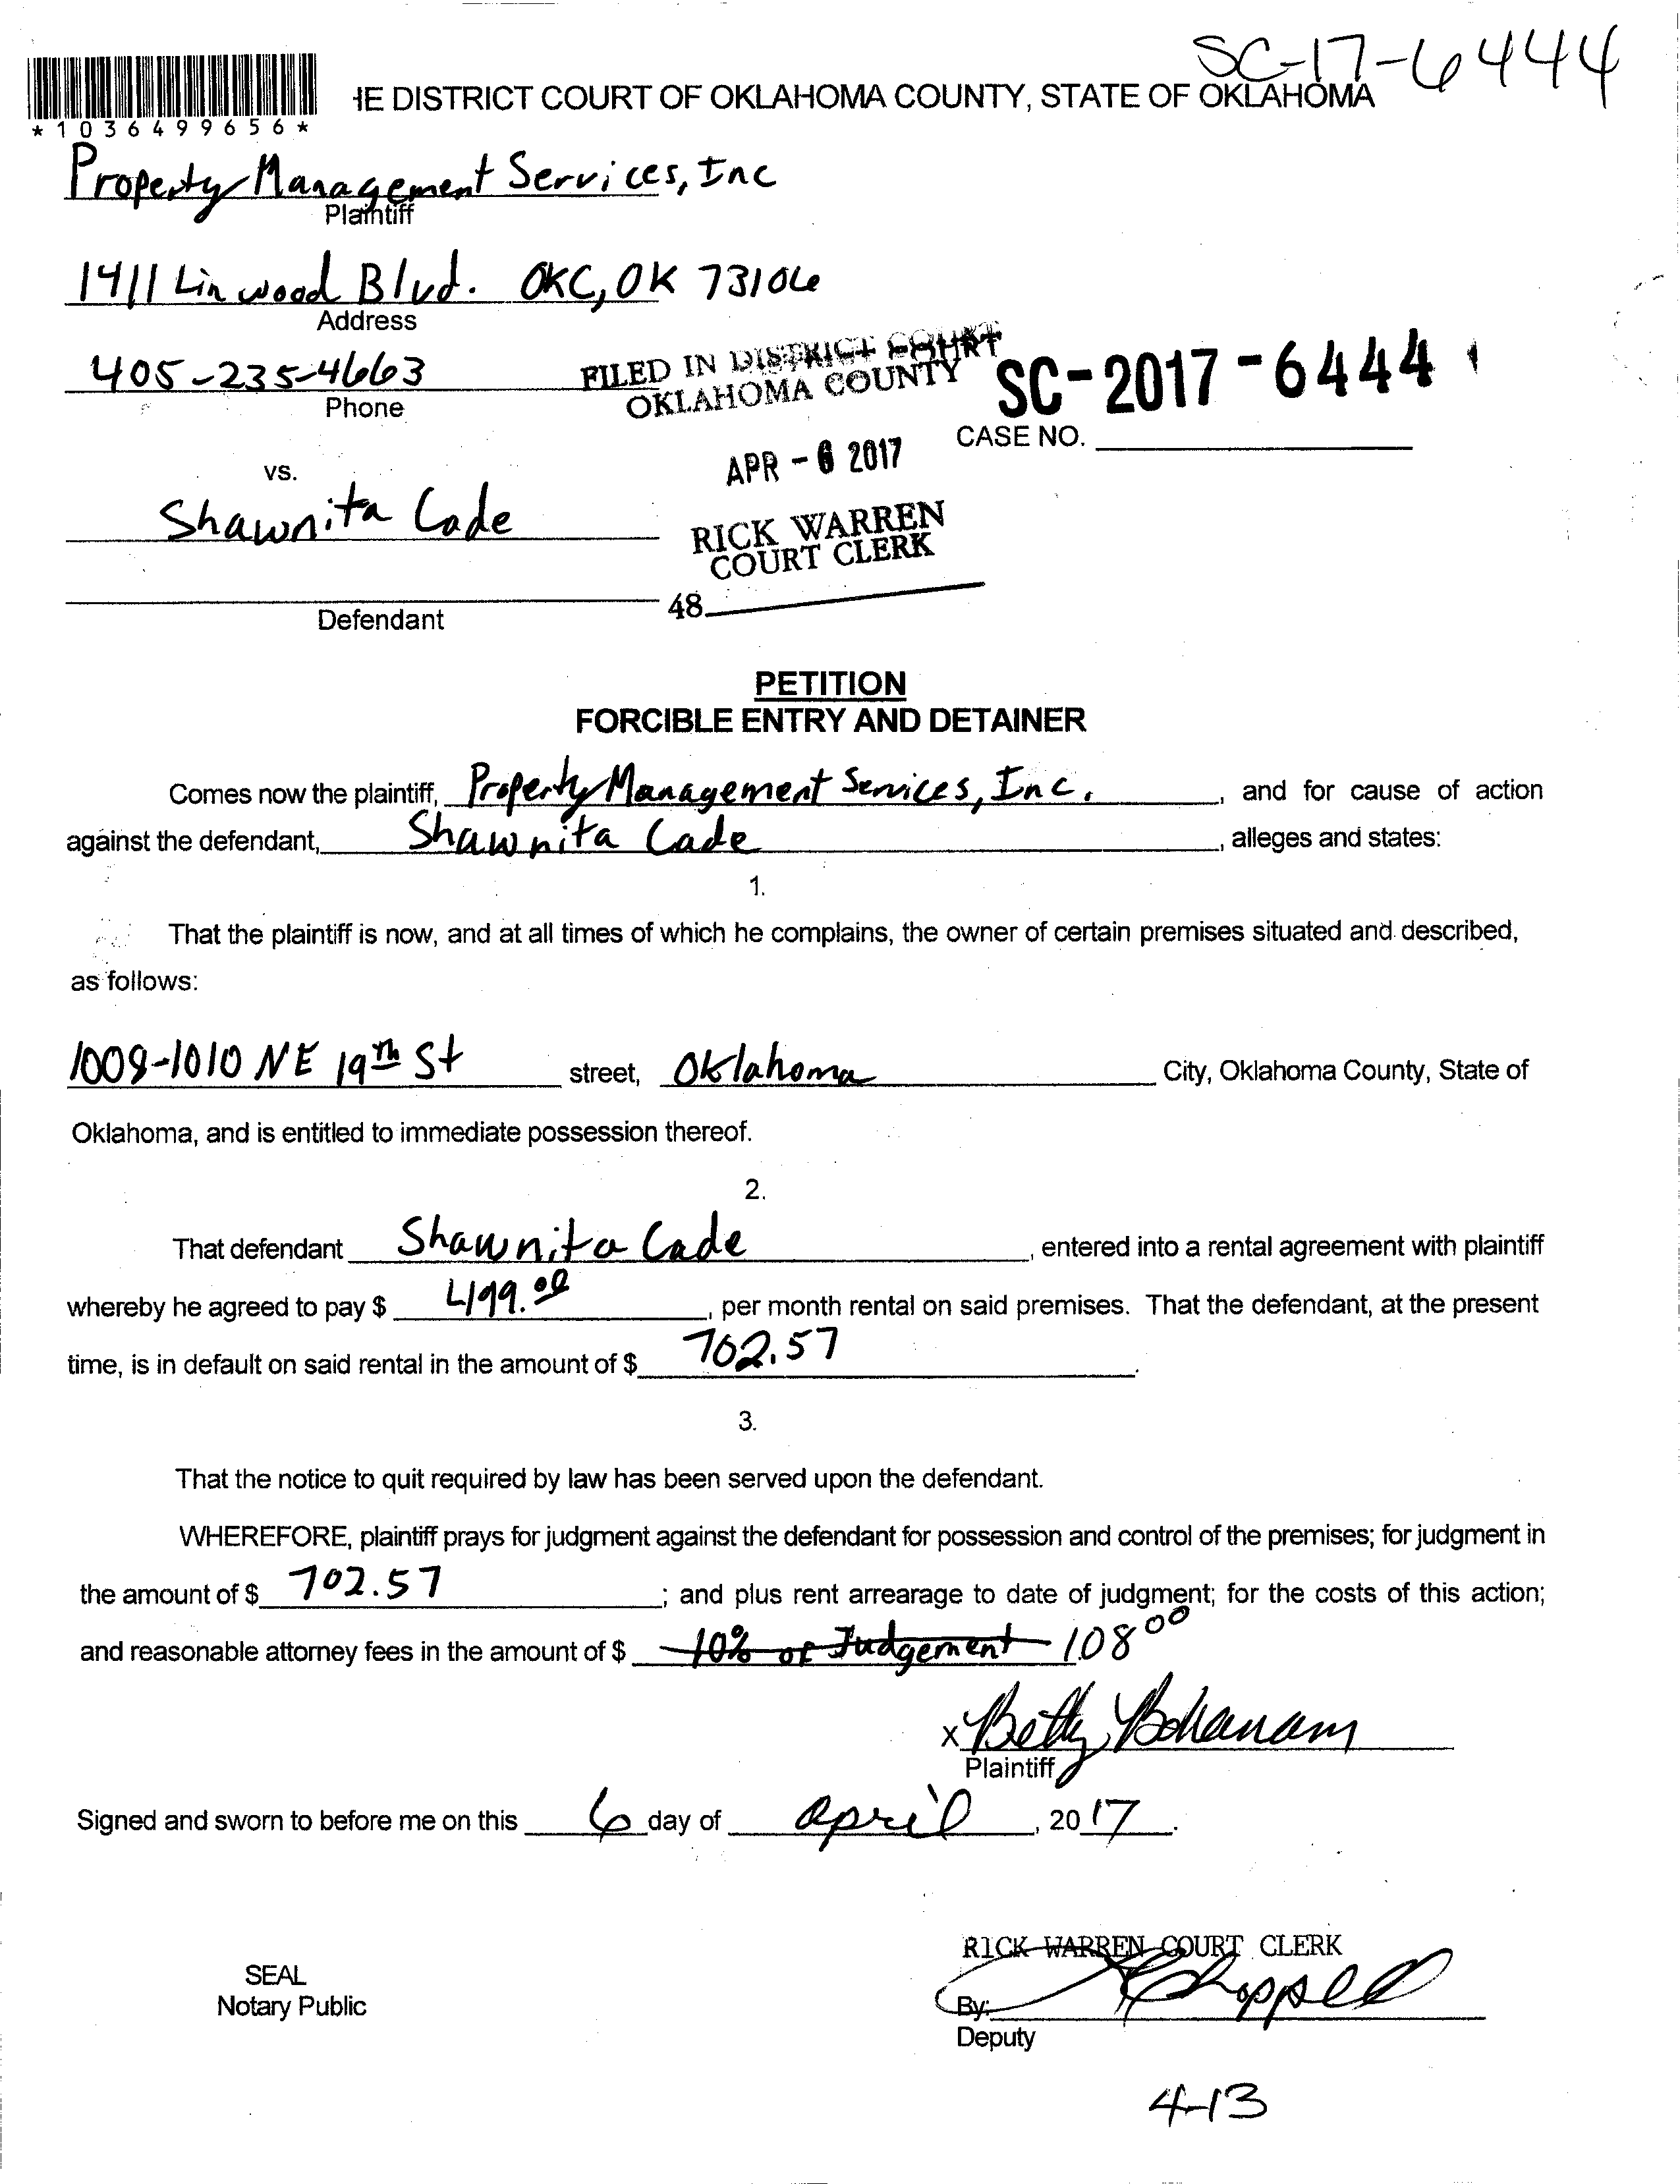 SC-17-6444
IE DISTRICT COURT OF OKLAHOMA COUNTY, STATE OF OKLAHOMA
*1036499656*
Property Management Services, Inc
Plaintiff
1411 Linwood Blvd. OKC, OK 73106
Address
405-235-4663
Phone
FILED IN DISTRICT COURT
OKLAHOMA COUNTY
SC-2017-6444
CASE NO.
APR - 6 2017
vs.
Shawnita Cade
RICK WARREN
COURT CLERK
48
Defendant
PETITION
FORCIBLE ENTRY AND DETAINER
Comes now the plaintiff, Property Management Services, Inc. , and for cause of action
against the defendant, Shawnita Cade , alleges and states:
1.
That the plaintiff is now, and at all times of which he complains, the owner of certain premises situated and described,
as follows:
1009-1010 NE 19th St street, Oklahoma City, Oklahoma County, State of
Oklahoma, and is entitled to immediate possession thereof.
2.
That defendant Shawnita Cade , entered into a rental agreement with plaintiff
whereby he agreed to pay $ 499.00 , per month rental on said premises. That the defendant, at the present
time, is in default on said rental in the amount of $ 702.57 .
3.
That the notice to quit required by law has been served upon the defendant.
WHEREFORE, plaintiff prays for judgment against the defendant for possession and control of the premises; for judgment in
the amount of $ 702.57 ; and plus rent arrearage to date of judgment; for the costs of this action;
and reasonable attorney fees in the amount of $ 10% of Judgement 108 00
x Betty Bohanam
Plaintiff
Signed and sworn to before me on this 6 day of april , 20 17 .
RICK WARREN COURT CLERK
SEAL
Notary Public
By: Chappell
Deputy
4-13